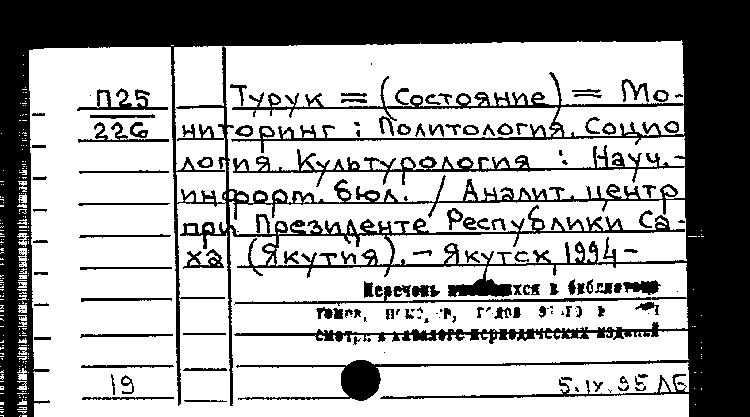 П25
226
Турук = (Состояние) = Мо-
ниторинг : Политология. Социо
логия. Культурология : Науч.-
информ. бюл. / Аналит. центр
при Президенте Республики Са-
ха (Якутия). – Якутск, 1994 –
Перечень в библиотеке
томов,
смотри в каталоге периодических изданий
19
5.IX.95 ЛБ